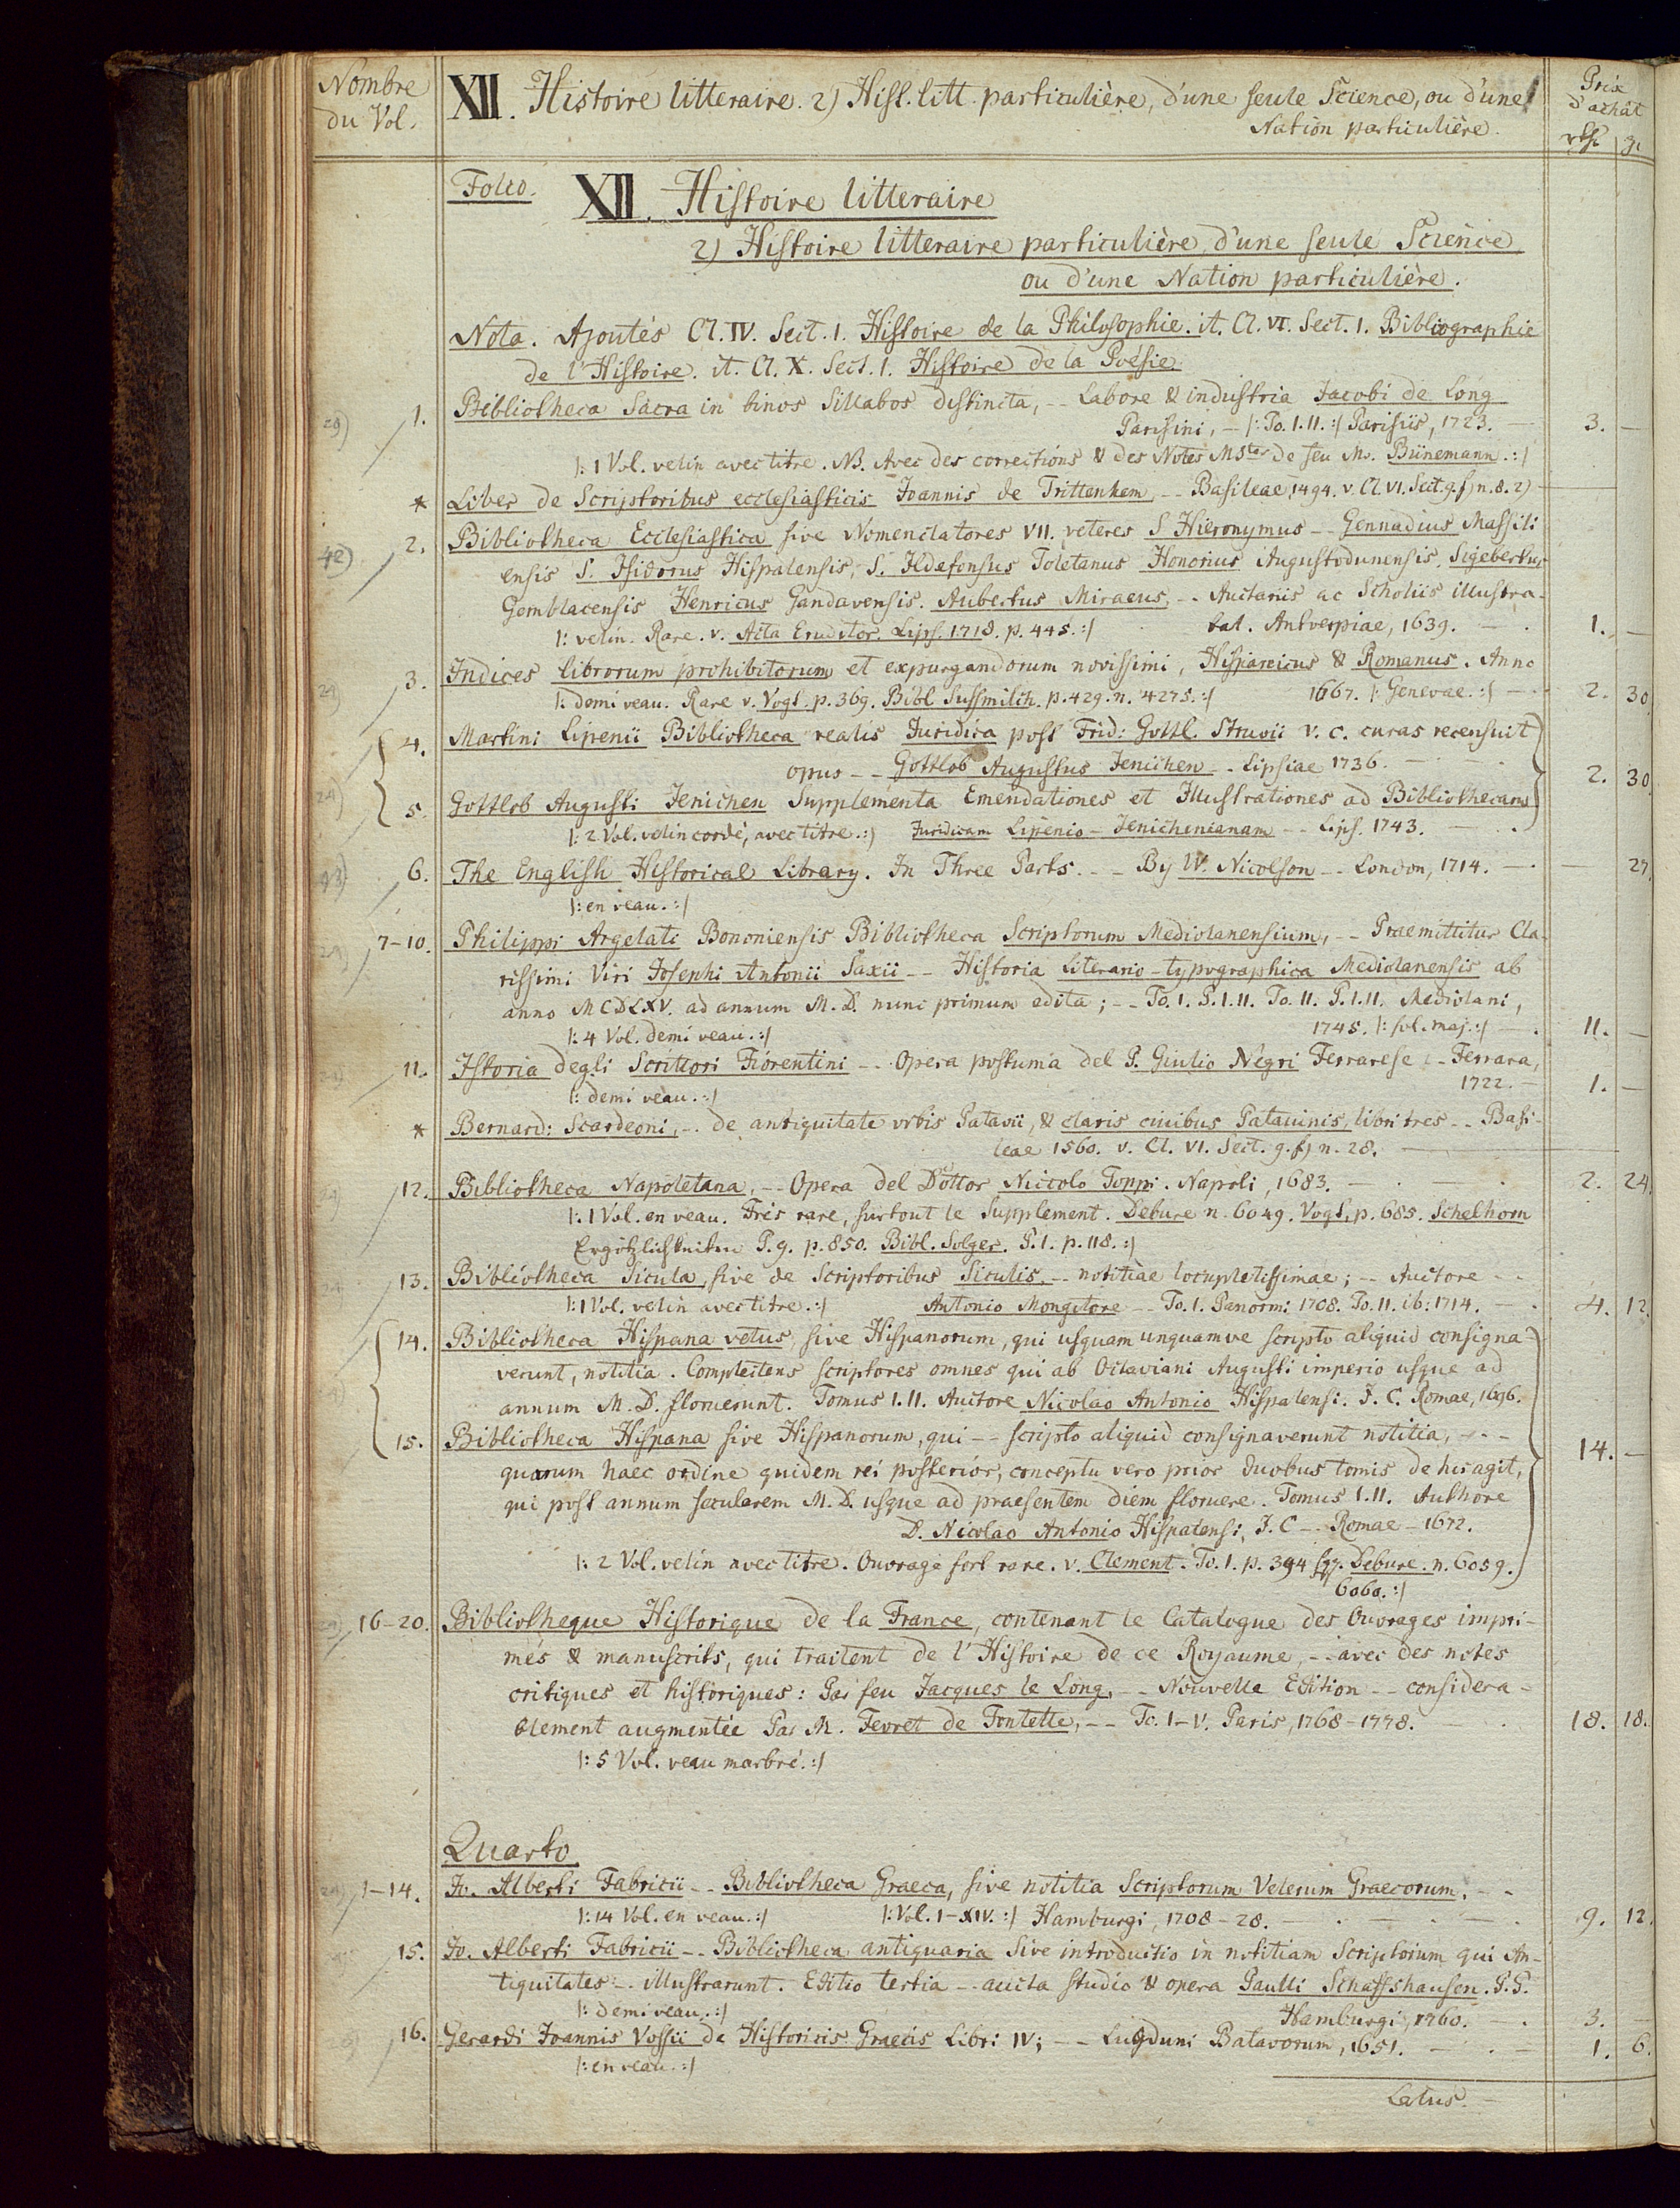 Nombre
du Vol.
XII. Histoire litteraire. 2) Hist. litt. particulière, d'une seule Science, ou d'une
Nation particulière.
Prix
d'achât
rth. g.
Folio. XII. Histoire litteraire
2) Histoire litteraire particulière, d'une seule Science
ou d'une Nation particulière.
Nota. Ajoutés Cl. IV. Sect. 1. Histoire de la Philosophie. it. Cl. VI. Sect. 1. Bibliographie
de l'Histoire. it. Cl. X. Sect. 1. Histoire de la Poësie.
1. Bibliotheca Sacra in binos Sillabos distincta, -- Labore & industria Jacobi de Long
Parisini, - |: To. I. II. :| Parisiis, 1723. - 3. -
|: 1 Vol. velin avec titre. NB. Avec des corrections & des Notes Mstes de feu Mr. Bünemann. :|
* Liber de Scriptoribus ecclesiasticis Joannis de Trittenhem -- Basileae, 1494. v. Cl. VI. Sect. 9. f) n. 8. 2)
2. Bibliotheca Ecclesiastica sive Nomenclatores VII. veteres S Hieronymus -- Gennadius Massili
ensis S. Isidorus Hispalensis, S. Ildefonsus Toletanus Honorius Augustodunensis, Sigebertus
Gemblacensis Henricus Gandavensis. Aubertus Miraeus, -- Auctariis ac Scholiis illustra-
bat. Antverpiae, 1639. - 1. -
|: velin. Rare. v. Acta Eruditor. Lips. 1718. p. 445. :|
3. Indices librorum prohibitorum et expurgandorum novissimi, Hispanicus & Romanus. Anno
1667. |: Genevae. :| - 2. 30
|: demi veau. Rare v. Vogt. p. 369. Bibl Sussmilch. p. 429. n. 4275. :|
4. Martini Lipenii Bibliotheca realis Juridica post Frid: Gottl. Struvii v. c. curas recensuit
opus -- Gottlob Augustus Jenichen -- Lipsiae 1736. - 2. 30
5. Gottlob Augusti Jenichen Supplementa Emendationes et Illustrationes ad Bibliothecam
|: 2 Vol. velin cordé, avec titre. :| Juridicam Lipenio-Jenichenianam -- Lips. 1743. -
6. The English Historical Library. In Three Parts. -- By W. Nicolson -- London, 1714. - - 27.
|: en veau. :|
7-10. Philippi Argelati Bononiensis Bibliotheca Scriptorum Mediolanensium, -- Praemittitur Cla-
rissimi Viri Josephi Antonii Saxii -- Historia Literario-typographica Mediolanensis ab
anno MCDLXV. ad annum M. D. nunc primum edita; -- To. I. P. I. II. To. II. P. I. II. Mediolani,
1745. |: fol. maj. :| - 11. -
|: 4 Vol. demi veau. :|
11. Istoria degli Scrittori Fiorentini -- Opera postuma del P. Giulio Negri Ferrarese -- Ferrara,
1722. - 1. -
|: demi veau. :|
* Bernard: Scardeoni, -- de antiquitate vrbis Patavii, & claris ciuibus Patauinis, libri tres -- Basi-
leae 1560. v. Cl. VI. Sect. 9. f) n. 28.
12. Bibliotheca Napoletana, -- Opera del Dottor Niccolò Toppi. Napoli, 1683. - 2. 24.
|: 1 Vol. en veau. Très rare, surtout le Supplement. Debure n. 6049. Vogt, p. 685. Schelhorn
Ergötzlichkeiten P. 9. p. 850. Bibl. Solger. P. 1. p. 118. :|
13. Bibliotheca Sicula, sive de Scriptoribus Siculis, -- notitiae locupletissimae; -- Auctore --
|: 1 Vol. velin avec titre. :| Antonio Mongitore -- To. I. Panorm: 1708. To. II. ib: 1714. - 4. 12.
14. Bibliotheca Hispana vetus, sive Hispanorum, qui usquam unquamve scripto aliquid consigna-
verunt, notitia. Complectens scriptores omnes qui ab Octaviani Augusti imperio usque ad
annum M. D. floruerunt. Tomus I. II. Auctore Nicolao Antonio Hispalensi. J. C. Romae, 1696.
15. Bibliotheca Hispana sive Hispanorum, qui -- scripto aliquid consignaverunt notitia, --
quorum haec ordine quidem rei posterior, conceptu vero prior duobus tomis de his agit, 14. -
qui post annum secularem M. D. usque ad praesentem diem floruere. Tomus I. II. Authore
D. Nicolao Antonio Hispalensi, J. C -- Romae - 1672.
|: 2 Vol. velin avec titre. Ouvrage fort rare. v. Clement. To. 1. p. 394 sqq. Debure. n. 6059.
6060. :|
16-20. Bibliotheque Historique de la France, contenant le Catalogue des Ouvrages impri-
més & manuscrits, qui traitent de l'Histoire de ce Royaume, -- avec des notes
critiques et historiques: Par feu Jacques le Long, -- Nouvelle Edition -- considera-
blement augmentée Par M. Fevret de Fontette, -- To. I-V. Paris, 1768-1778. - 18. 18.
|: 5 Vol. veau marbré. :|
Quarto
1-14. Jo. Alberti Fabricii -- Bibliotheca Graeca, sive notitia Scriptorum Veterum Graecorum, --
|: 14 Vol. en veau. :| |: Vol. I-XIV. :| Hamburgi, 1708-28. - 9. 12.
15. Jo. Alberti Fabricii -- Bibliotheca antiquaria sive introductio in notitiam Scriptorum qui An-
tiquitates -- illustrarunt. Editio tertia -- aucta studio & opera Paulli Schaffshausen. P. P.
|: demi veau. :| Hamburgi, 1760. - 3. -
16. Gerardi Joannis Vossii de Historicis Graecis Libri IV; -- Lugduni Batavorum, 1651. - 1. 6.
|: en veau. :|
Latus. -